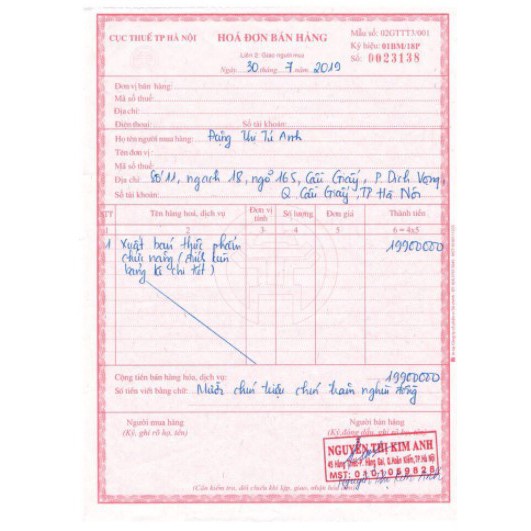 CỤC THUẾ TP HÀ NỘI
HOÁ ĐƠN BÁN HÀNG
Liên 2: Giao người mua
Ngày 30 tháng 7 năm 2019
Mẫu số: 02GTTT3/001
Ký hiệu: 01BM/18P
Số: 0023138
Đơn vị bán hàng:
Mã số thuế:
Địa chỉ:
Điện thoại: Số tài khoản:
Họ tên người mua hàng: Đặng Thị Tú Anh
Tên đơn vị:
Mã số thuế:
Địa chỉ: Số 11, ngách 18, ngõ 165, Cầu Giấy, P. Dịch Vọng,
Số tài khoản: Q. Cầu Giấy, TP Hà Nội
STT Tên hàng hoá, dịch vụ Đơn vị tính Số lượng Đơn giá Thành tiền
1 2 3 4 5 6 = 4x5
1 Xuất bán thực phẩm 19900000
chức năng (đính kèm
bảng kê chi tiết)
Cộng tiền bán hàng hóa, dịch vụ: 19900000
Số tiền viết bằng chữ: Mười chín triệu chín trăm nghìn đồng
Người mua hàng
(Ký, ghi rõ họ, tên)
Người bán hàng
(Ký, đóng dấu, ghi rõ họ, tên)
NGUYỄN THỊ KIM ANH
P. Hàng Gai, Q.Hoàn Kiếm, TP.Hà Nội
MST: 0101069828
Nguyễn Thị Kim Anh
(Cần kiểm tra, đối chiếu khi lập, giao, nhận hóa đơn)